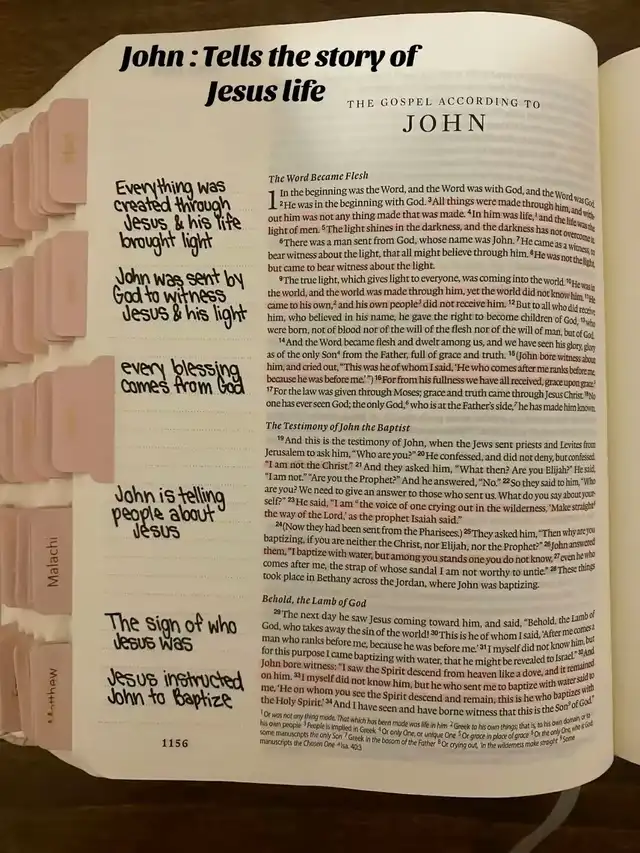 John : Tells the story of
Jesus life
THE GOSPEL ACCORDING TO
JOHN
Everything was
created through
Jesus & his life
brought light
John was sent by
God to witness
Jesus & his light
every blessing
comes from God
John is telling
people about
Jesus
The sign of who
Jesus was
Jesus instructed
John to Baptize
Malachi
Matthew
1156
The Word Became Flesh
1 In the beginning was the Word, and the Word was with God, and the Word was God.
2 He was in the beginning with God. 3 All things were made through him, and with-
out him was not any thing made that was made. 4 In him was life,1 and the life was the
light of men. 5 The light shines in the darkness, and the darkness has not overcome it.
6 There was a man sent from God, whose name was John. 7 He came as a witness, to
bear witness about the light, that all might believe through him. 8 He was not the light,
but came to bear witness about the light.
9 The true light, which gives light to everyone, was coming into the world. 10 He was in
the world, and the world was made through him, yet the world did not know him. 11 He
came to his own,2 and his own people3 did not receive him. 12 But to all who did receive
him, who believed in his name, he gave the right to become children of God, 13 who
were born, not of blood nor of the will of the flesh nor of the will of man, but of God.
14 And the Word became flesh and dwelt among us, and we have seen his glory, glory
as of the only Son4 from the Father, full of grace and truth. 15 (John bore witness about
him, and cried out, "This was he of whom I said, 'He who comes after me ranks before me,
because he was before me.'") 16 For from his fullness we have all received, grace upon grace.5
17 For the law was given through Moses; grace and truth came through Jesus Christ. 18 No
one has ever seen God; the only God,6 who is at the Father's side,7 he has made him known.
The Testimony of John the Baptist
19 And this is the testimony of John, when the Jews sent priests and Levites from
Jerusalem to ask him, "Who are you?" 20 He confessed, and did not deny, but confessed,
"I am not the Christ." 21 And they asked him, "What then? Are you Elijah?" He said,
"I am not." "Are you the Prophet?" And he answered, "No." 22 So they said to him, "Who
are you? We need to give an answer to those who sent us. What do you say about your-
self?" 23 He said, "I am the voice of one crying out in the wilderness, 'Make straight8
the way of the Lord,' as the prophet Isaiah said."
24 (Now they had been sent from the Pharisees.) 25 They asked him, "Then why are you
baptizing, if you are neither the Christ, nor Elijah, nor the Prophet?" 26 John answered
them, "I baptize with water, but among you stands one you do not know, 27 even he who
comes after me, the strap of whose sandal I am not worthy to untie." 28 These things
took place in Bethany across the Jordan, where John was baptizing.
Behold, the Lamb of God
29 The next day he saw Jesus coming toward him, and said, "Behold, the Lamb of
God, who takes away the sin of the world! 30 This is he of whom I said, 'After me comes a
man who ranks before me, because he was before me.' 31 I myself did not know him, but
for this purpose I came baptizing with water, that he might be revealed to Israel." 32 And
John bore witness: "I saw the Spirit descend from heaven like a dove, and it remained
on him. 33 I myself did not know him, but he who sent me to baptize with water said to
me, 'He on whom you see the Spirit descend and remain, this is he who baptizes with
the Holy Spirit.' 34 And I have seen and have borne witness that this is the Son9 of God."
1 Or was not any thing made. That which has been made was life in him 2 Greek to his own things; that is, to his own domain, or to
3 People is implied in Greek 4 Or only One, or unique One 5 Or grace in place of grace 6 Or the only One, who is God;
some manuscripts the only Son 7 Greek in the bosom of the Father 8 Or crying out, 'In the wilderness make straight 9 Some
manuscripts the Chosen One Isa. 40:3